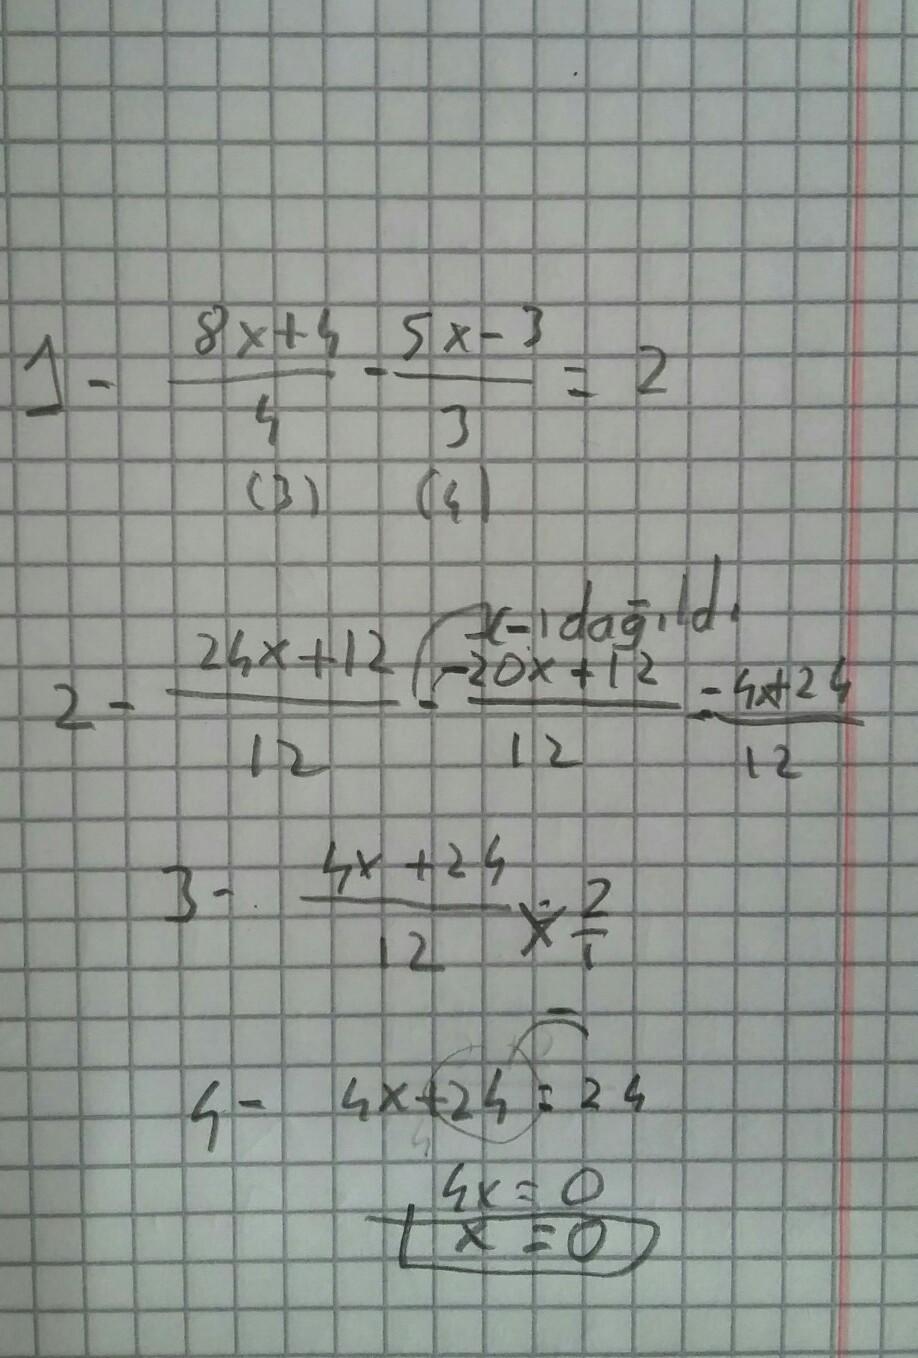 1- 8x+4/4 - 5x-3/3 = 2
(3) (4)
x-1 dağıldı
2- 24x+12/12 - -20x+12/12 = 4x+24/12
3- 4x+24/12 = 2/1
4- 4x+24 = 24
4x = 0
x = 0